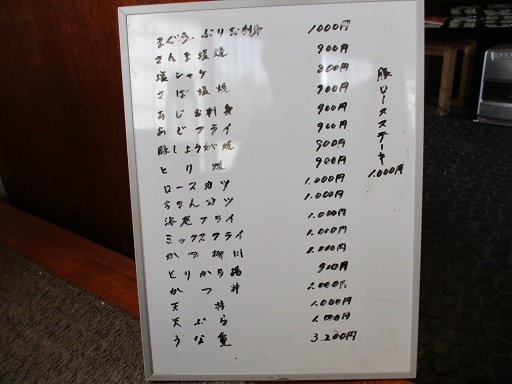 まぐろ、ぶりお刺身 1000円
さんま塩焼 900円
塩シャケ 800円
さば塩焼 900円
あじお刺身 900円
あじフライ 900円
豚しょうが焼 900円
とり焼 900円
ロースカツ 1.000円
ちきんカツ 1.000円
海老フライ 1.000円
ミックスフライ 1.000円
かつ柳川 1.000円
とりから揚 900円
かつ丼 1.000円
天丼 1.000円
天ぷら 1.000円
うな重 3.200円
豚ロースステーキ
1.000円